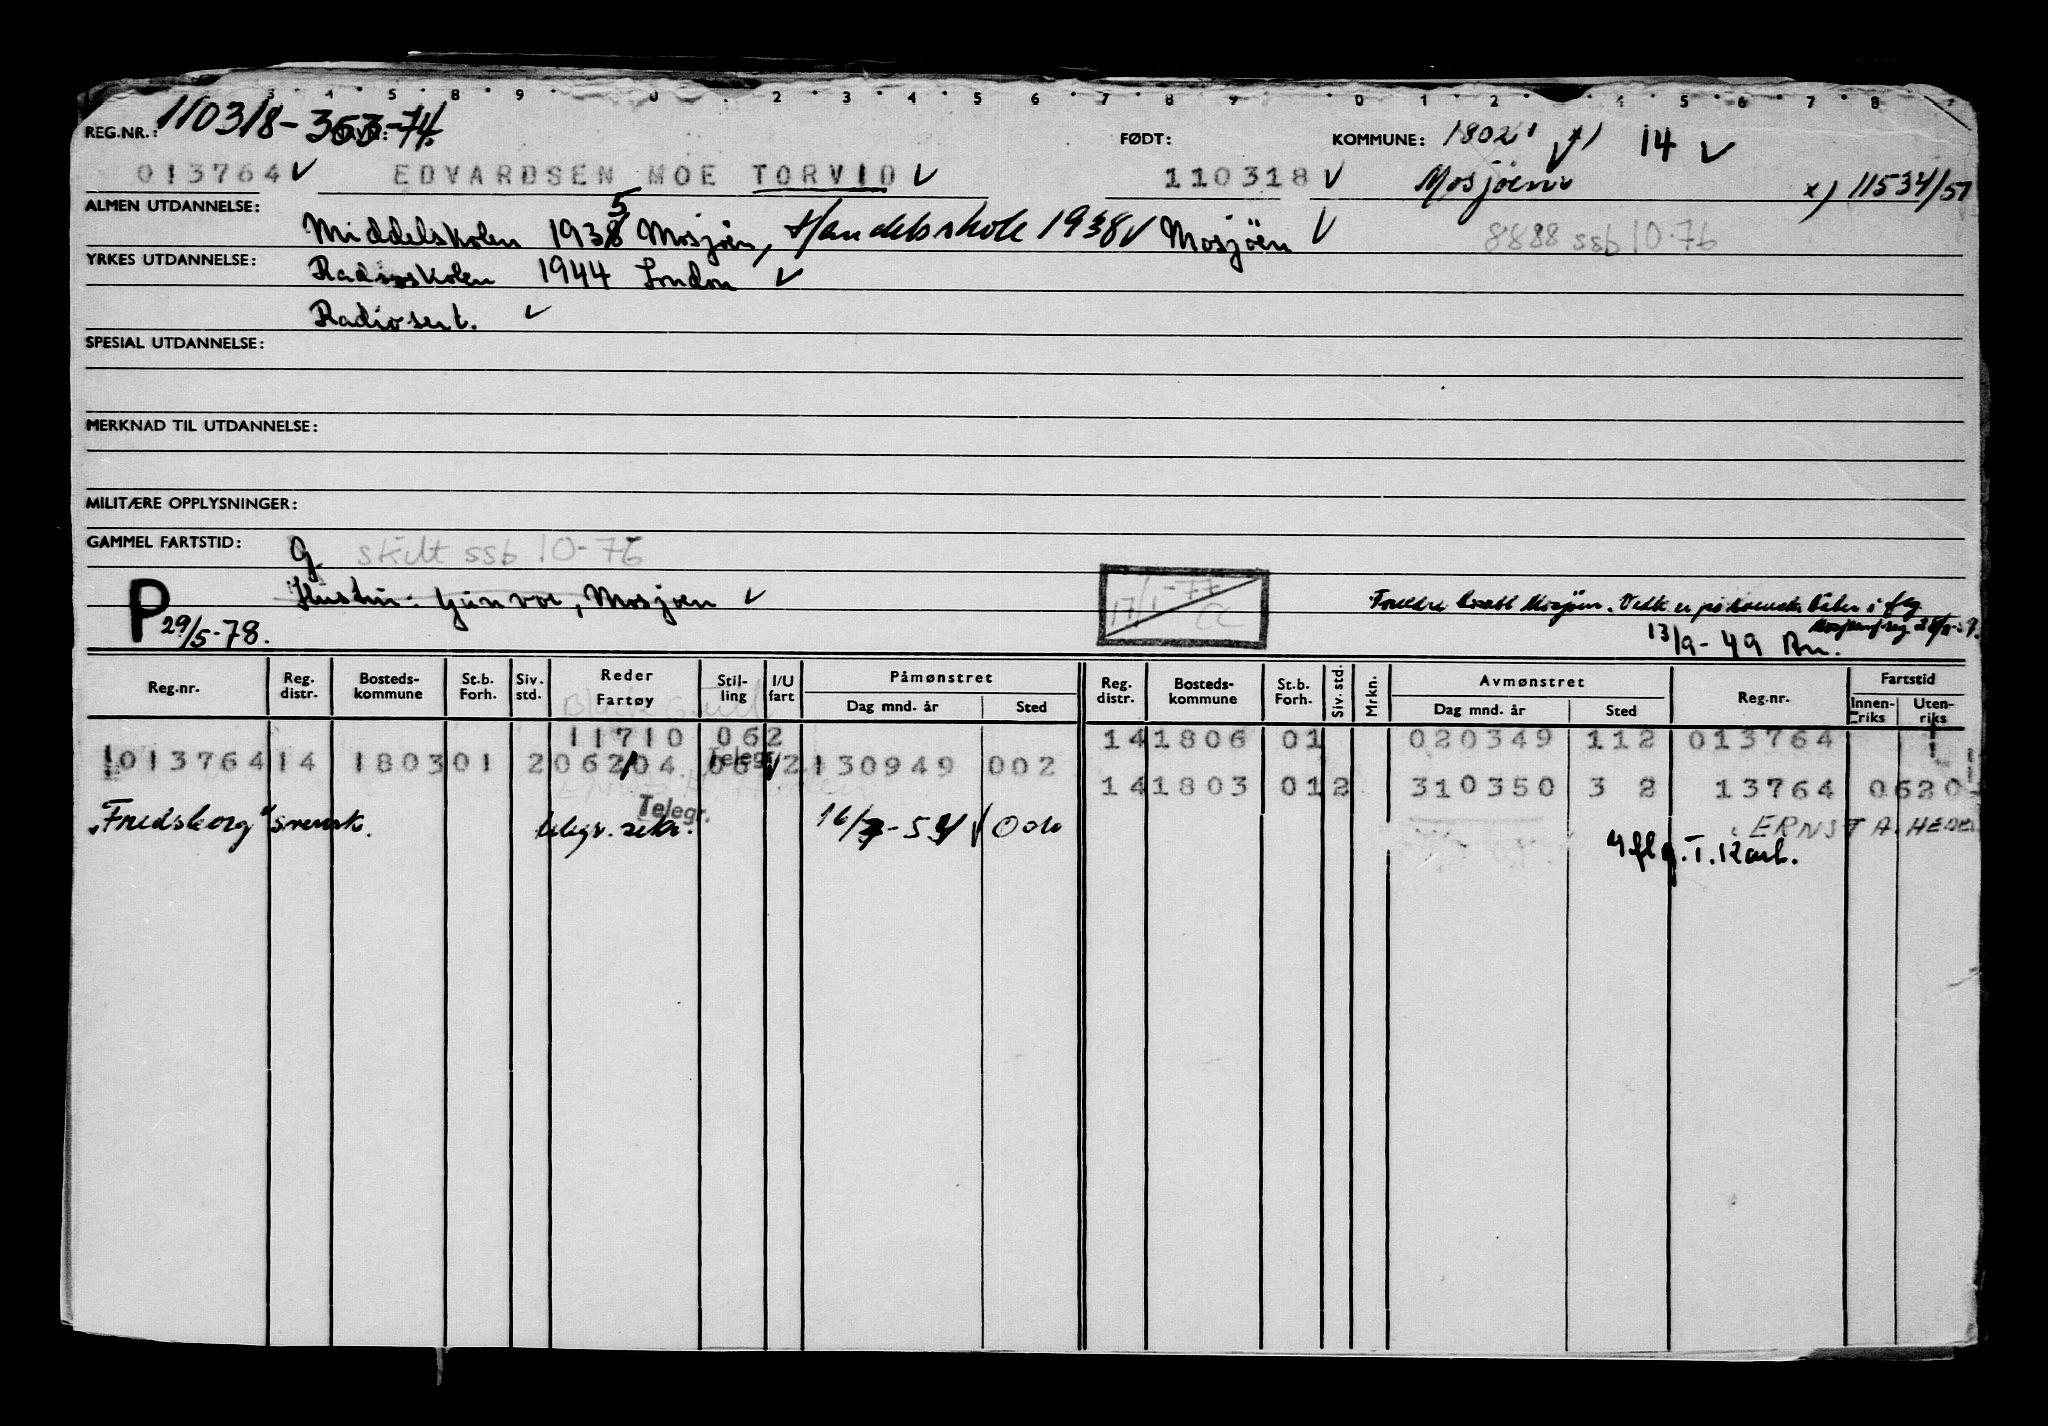 3 · 4 · 5 · 8 · 9 · 0 · 2 · 3 · 4 · 5 6 · 7 · 8 · 9 · 0 · 1 · 2 · 4 · 5 · 6 · 7 · 8
REG.NR.: 110318-363-74 FØDT: KOMMUNE: 1802 x) 14 ✓
013764 ✓ EDVARDSEN MOE TORVID ✓ 110318 ✓ Mosjøen x) 11534/51
ALMEN UTDANNELSE: Middelskolen 1935 Mosjøen, Handelsskole 1938 ✓ Mosjöen ✓ 8888 ssb 10-76
YRKES UTDANNELSE: Radioskolen 1944 London ✓
Radiosert. ✓
SPESIAL UTDANNELSE:
MERKNAD TIL UTDANNELSE:
MILITÆRE OPPLYSNINGER:
GAMMEL FARTSTID: g skilt ssb 10-76
P 29/5-78. Hustru: Gunvor, Mosjøen ✓ 17/1-77 CC
Foreldre bosatt Mosjöen. Vedk er på svenske båter i flg
13/9-49
Reg.nr. Reg. distr. Bosteds-kommune St.b. Forh. Siv. std. Reder Fartøy Stil-ling I/U fart Påmønstret Dag mnd. år Sted Reg. distr. Bosteds-kommune St.b. Forh. Siv. std. Mrkn. Avmønstret Dag mnd. år Sted Reg.nr. Fartstid Innen-riks Uten-riks
11710 062 14 1806 01 020349 112 013764
013764 14 1803 01 2 06204 Telegr. 2 130949 002
14 1803 01 2 310350 3 2 13764 0620
"Fredsborg" svensk. Telegr. telegr. 16/ Oslo ERNST A. HEDE